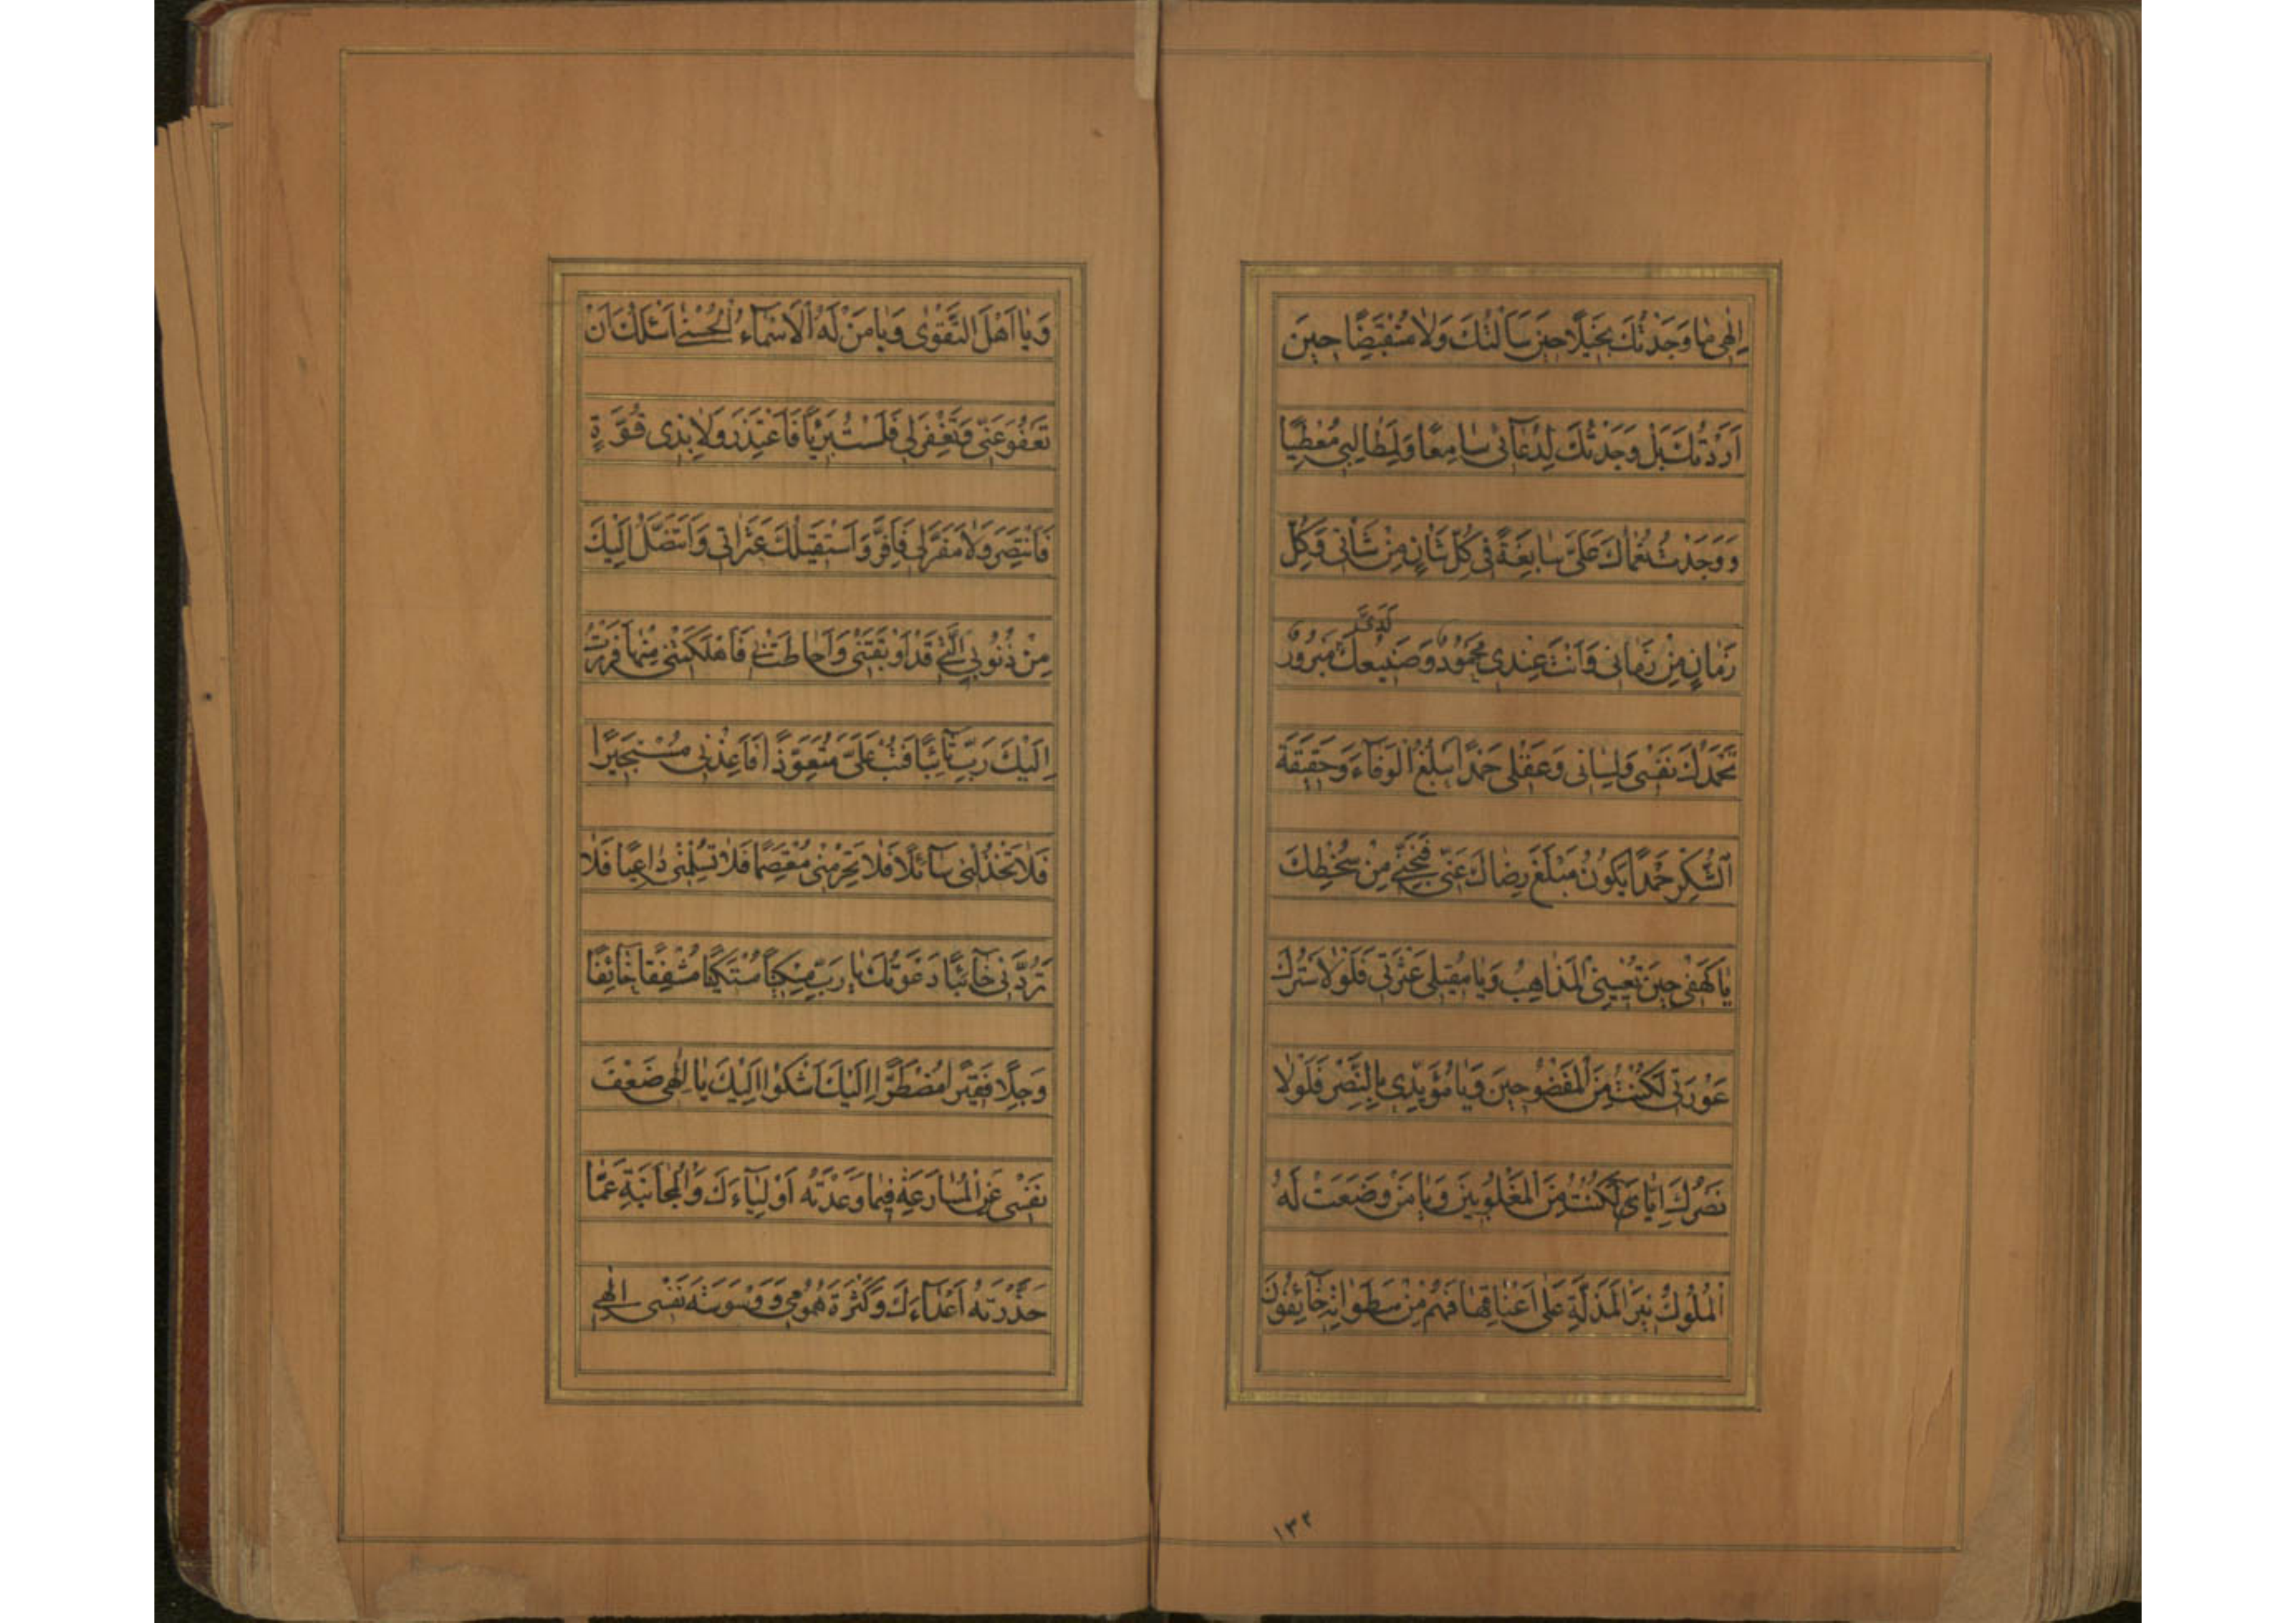 اِلٰهی مٰا وَجَدْتُكَ بَخیلًا حینَ سَاَلْتُكَ وَلٰا مُنْقَبِضًا حینَ
اَرَدْتُكَ بَلْ وَجَدْتُكَ لِدُعآئی سٰامِعًا وَلِمَطٰالِبی مُعْطِیًا
وَوَجَدْتُ نُعْمٰاكَ عَلَیَّ سٰابِغَةً فی كُلِّ شَاْنٍ مِنْ شَاْنی وَكُلِّ
لَدَیَّ
زَمٰانٍ مِنْ زَمٰانی وَاَنْتَ عِنْدی مَحْمُودٌ وَصَنیعُكَ مَبْرُورٌ
تَحْمَدُكَ نَفْسی وَلِسٰانی وَعَقْلی حَمْدًا یَبْلُغُ الْوَفآءَ وَحَقیقَةَ
الشُّكْرِ حَمْدًا یَكُونُ مَبْلَغَ رِضٰاكَ عَنّی فَنَجِّنی مِنْ سُخْطِكَ
یٰا كَهْفی حینَ تُعْیینِی الْمَذٰاهِبُ وَیٰا مُقیلی عَثْرَتی فَلَوْلٰا سَتْرُكَ
عَوْرَتی لَكُنْتُ مِنَ الْمَفْضُوحینَ وَیٰا مُؤَیِّدی بِالنَّصْرِ فَلَوْلٰا
نَصْرُكَ اِیّٰایَ لَكُنْتُ مِنَ الْمَغْلُوبینَ وَیٰا مَنْ وَضَعَتْ لَهُ
الْمُلُوكُ نیرَ الْمَذَلَّةِ عَلٰی اَعْنٰاقِهٰا فَهُمْ مِنْ سَطَوٰاتِهِ خآئِفُونَ
١٣٢
وَیٰا اَهْلَ التَّقْوٰی وَیٰا مَنْ لَهُ الْاَسْمآءُ الْحُسْنٰی اَسْئَلُكَ اَنْ
تَعْفُوَ عَنّی وَتَغْفِرَ لی فَلَسْتُ بَریًٔا فَاَعْتَذِرَ وَلٰا بِذی قُوَّةٍ
فَاَنْتَصِرَ وَلٰا مَفَرَّ لی فَاَفِرَّ وَاَسْتَقیلُكَ عَثَرٰاتی وَاَتَنَصَّلُ اِلَیْكَ
مِنْ ذُنُوبِیَ الَّتی قَدْ اَوْبَقَتْنی وَاَحٰاطَتْ بی فَاَهْلَكَتْنی مِنْهٰا فَرَرْتُ
اِلَیْكَ رَبِّ تآئِبًا فَتُبْ عَلَیَّ مُتَعَوِّذًا فَاَعِذْنی مُسْتَجیرًا
فَلٰا تَخْذُلْنی سآئِلًا فَلٰا تَحْرِمْنی مُعْتَصِمًا فَلٰا تُسْلِمْنی دٰاعِیًا فَلٰا
تَرُدَّنی خآئِبًا دَعَوْتُكَ یٰا رَبِّ مِسْكینًا مُسْتَكینًا مُشْفِقًا خآئِفًا
وَجِلًا فَقیرًا مُضْطَرًّا اِلَیْكَ اَشْكُوا اِلَیْكَ یٰا اِلٰهی ضَعْفَ
نَفْسی عَنِ الْمُسٰارَعَةِ فیمٰا وَعَدْتَهُ اَوْلِیآءَكَ وَالْمُجٰانَبَةِ عَمّٰا
حَذَّرْتَهُ اَعْدآءَكَ وَكَثْرَةَ هُمُومی وَوَسْوَسَةَ نَفْسی اِلٰهی